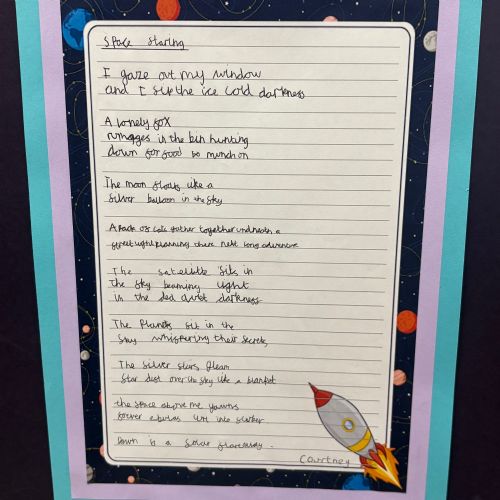 Space Staring
I gaze out my window
and I see the ice cold darkness
A lonely fox
rumages in the bin hunting
down for food to munch on
The moon floats like a
silver balloon in the sky
A pack of cats gather together underneath a
street light planning there next long adventure
The satellite sits in
the sky beaming light
in the dead quiet darkness
The Planets sit in the
sky whispering their secrets,
The silver stars gleam
Star dust over the sky like a blanket
the space above me yawns
forever
Down is a
Courtney